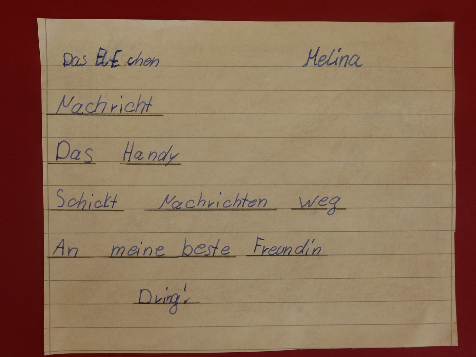 Das Elfchen Melina
Nachricht
Das Handy
Schickt Nachrichten weg
An meine beste Freundin
Dring!